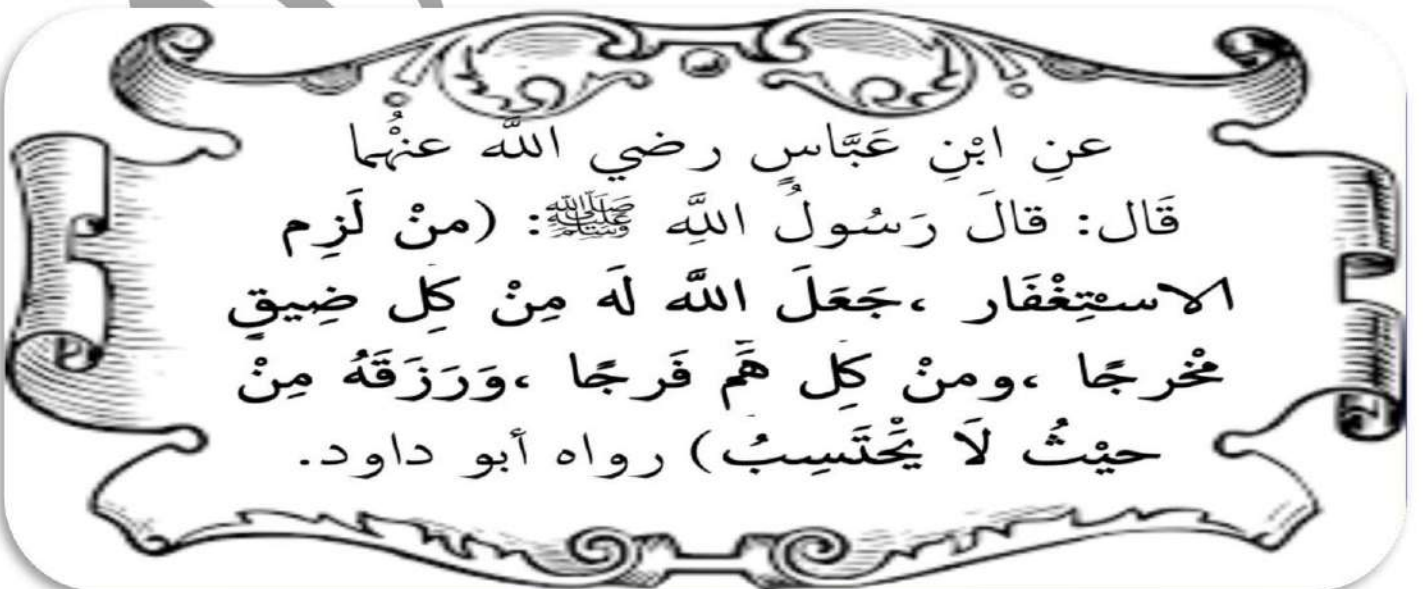 عنِ ابْنِ عَبَّاسٍ رضي اللَّه عنْهُما
قَال: قالَ رَسُولُ اللَّهِ ﷺ: (منْ لَزِم
الاستِغْفَار ،جَعَلَ اللَّه لَه مِنْ كُلِ ضِيقٍ
مخْرجًا ،ومنْ كُلِ هَمٍ فَرجًا ،وَرَزَقَهُ مِنْ
حيْثُ لاَ يَحْتَسِبُ) رواه أبو داود.